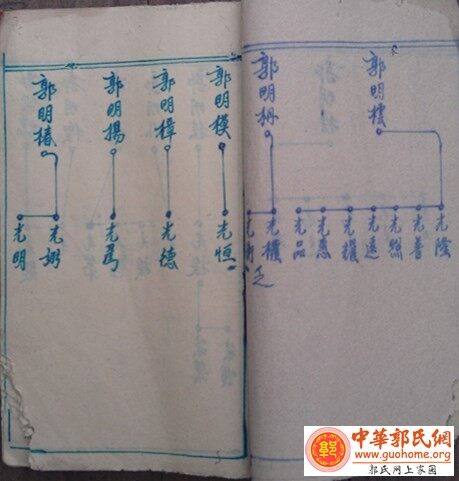 郭明樰
郭明枬
光隆
光普
光縣
光遠
光權
光惠
光品
光機
乏
郭明模
郭明樟
郭明揚
郭明椿
光恒
光德
光弼
光明
中華郭氏網
www.guohome.org
郭氏网上家園